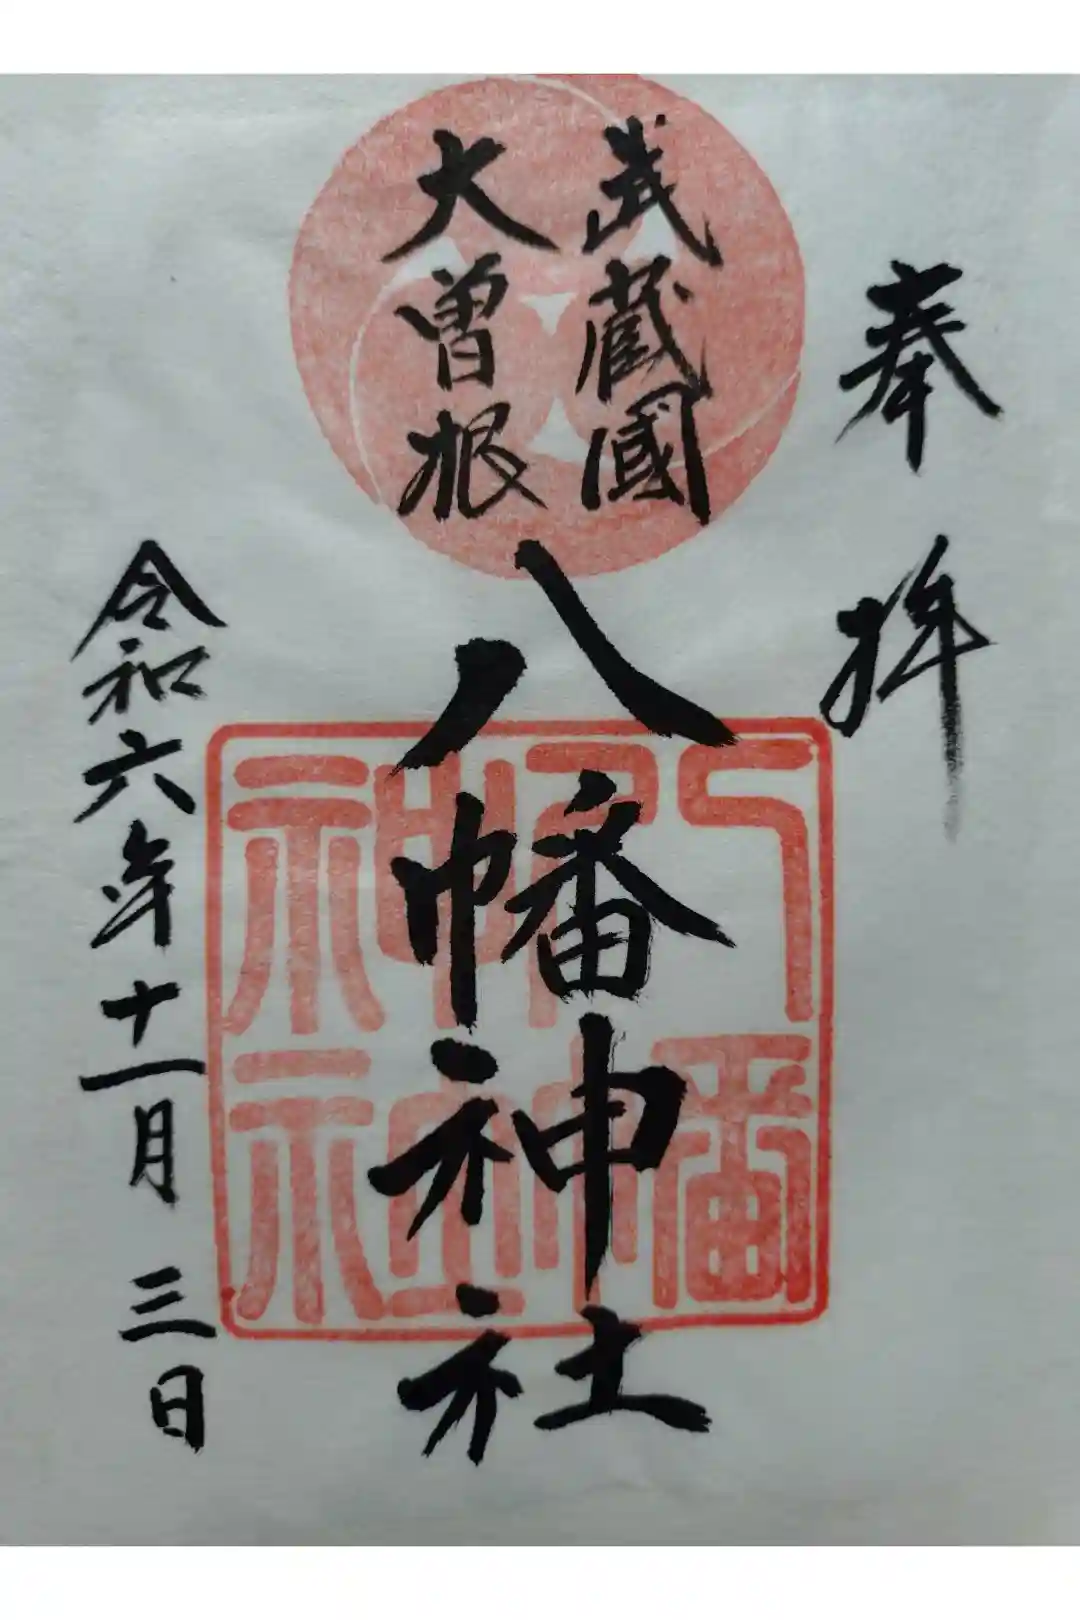 奉拝
武蔵國
大曽根
八幡神社
八幡神社
令和六年十一月三日